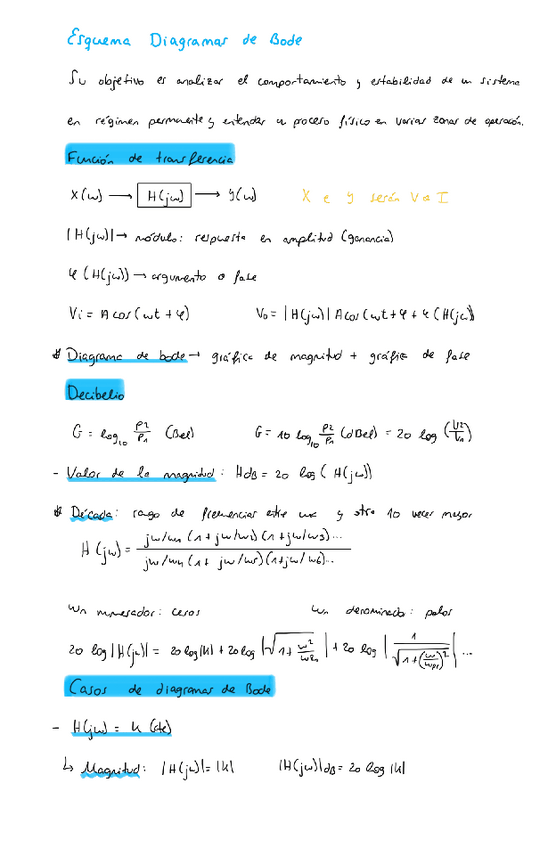 Esquema Diagramas de Bode
Su objetivo es analizar el comportamiento y estabilidad de un sistema
en régimen permanente y entender un proceso físico en varias zonas de operación.
Función de transferencia
X(ω) → H(jω) → y(ω) X e y serán V o I
|H(jω)| → módulo: respuesta en amplitud (ganancia)
φ(H(jω)) → argumento o fase
Vi = A cos(ωt + φ) Vo = |H(jω)| A cos(ωt + φ + φ(H(jω))
* Diagrama de bode → gráfica de magnitud + gráfica de fase
Decibelio
G = log₁₀ P2/P1 (Bel) G = 10 log₁₀ P2/P1 (dBel) = 20 log (V2/V1)
- Valor de la magnitud: HdB = 20 log (H(jω))
* Década: rango de frecuencias entre una y otra 10 veces mayor
H(jω) = jω/ω1 (1 + jω/ω2) (1 + jω/ω3)... / jω/ω4 (1 + jω/ω5) (1 + jω/ω6)...
ωn numerador: ceros ωn denominado: polos
20 log |H(jω)| = 20 log |K| + 20 log |√(1 + ω²/ω²z1)| + 20 log |1/√(1 + (ω/ωp1)²)| ...
Casos de diagramas de Bode
- H(jω) = K (cte)
↳ Magnitud: |H(jω)| = |K| |H(jω)|dB = 20 log |K|